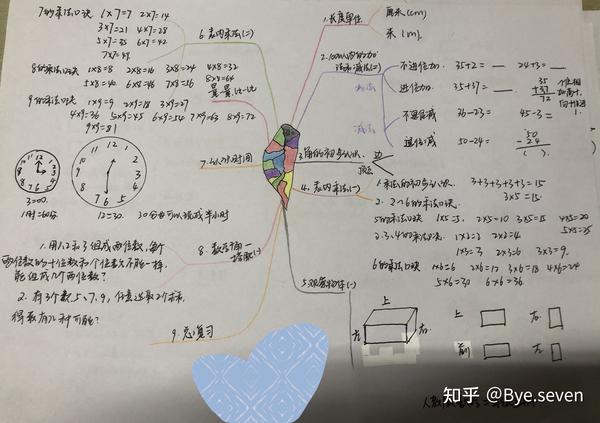 7的乘法口诀 1×7=7 2×7=14
3×7=21 4×7=28
5×7=35 6×7=42
7×7=49
8的乘法口诀 1×8=8 2×8=16 3×8=24 4×8=32
5×8=40 6×8=48 7×8=56 8×8=64
量一量,比一比
9的乘法口诀 1×9=9 2×9=18 3×9=27
4×9=36 5×9=45 6×9=54 7×9=63 8×9=72
9×9=81
6.表内乘法(二)
7.认识时间
3:00
1时=60分
12:30. 30分也可以说成半小时
8.数学广角—
搭配(一)
1.用1,2和3组成两位数,每个
两位数的十位数和个位数不能一样,
能组成几个两位数?
2.有3个数5、7、9,任意选取2个求和
得数有几种可能?
9.总复习
1.长度单位
厘米(cm)
米(m).
2.100以内的加
法和减法(二)
加法
不进位加. 35+2= 24+3=
进位加. 35+37=
35
+37
72
个位相
加满十,
向十位进
1.
减法
不退位减 36-23= 45-3=
退位减 50-24=
50
-24
( ).
3.角的初步认识.
边
顶点
4.表内乘法(一)
1.乘法的初步认识. 3+3+3+3+3=15
3×5=15.
2. 2~6的乘法口诀.
5的乘法口诀 1×5=5. 2×5=10 3×5=15 4×5=20
5×5=25
2.3.4的乘法口诀. 1×2=2 2×2=4.
1×3=3 2×3=6 3×3=9.
6的乘法口诀 1×6=6 2×6=12 3×6=18 4×6=24
5×6=30 6×6=36.
5.观察物体(一)
上
左
右.
上
右.
前
左
知乎 @Bye.seven